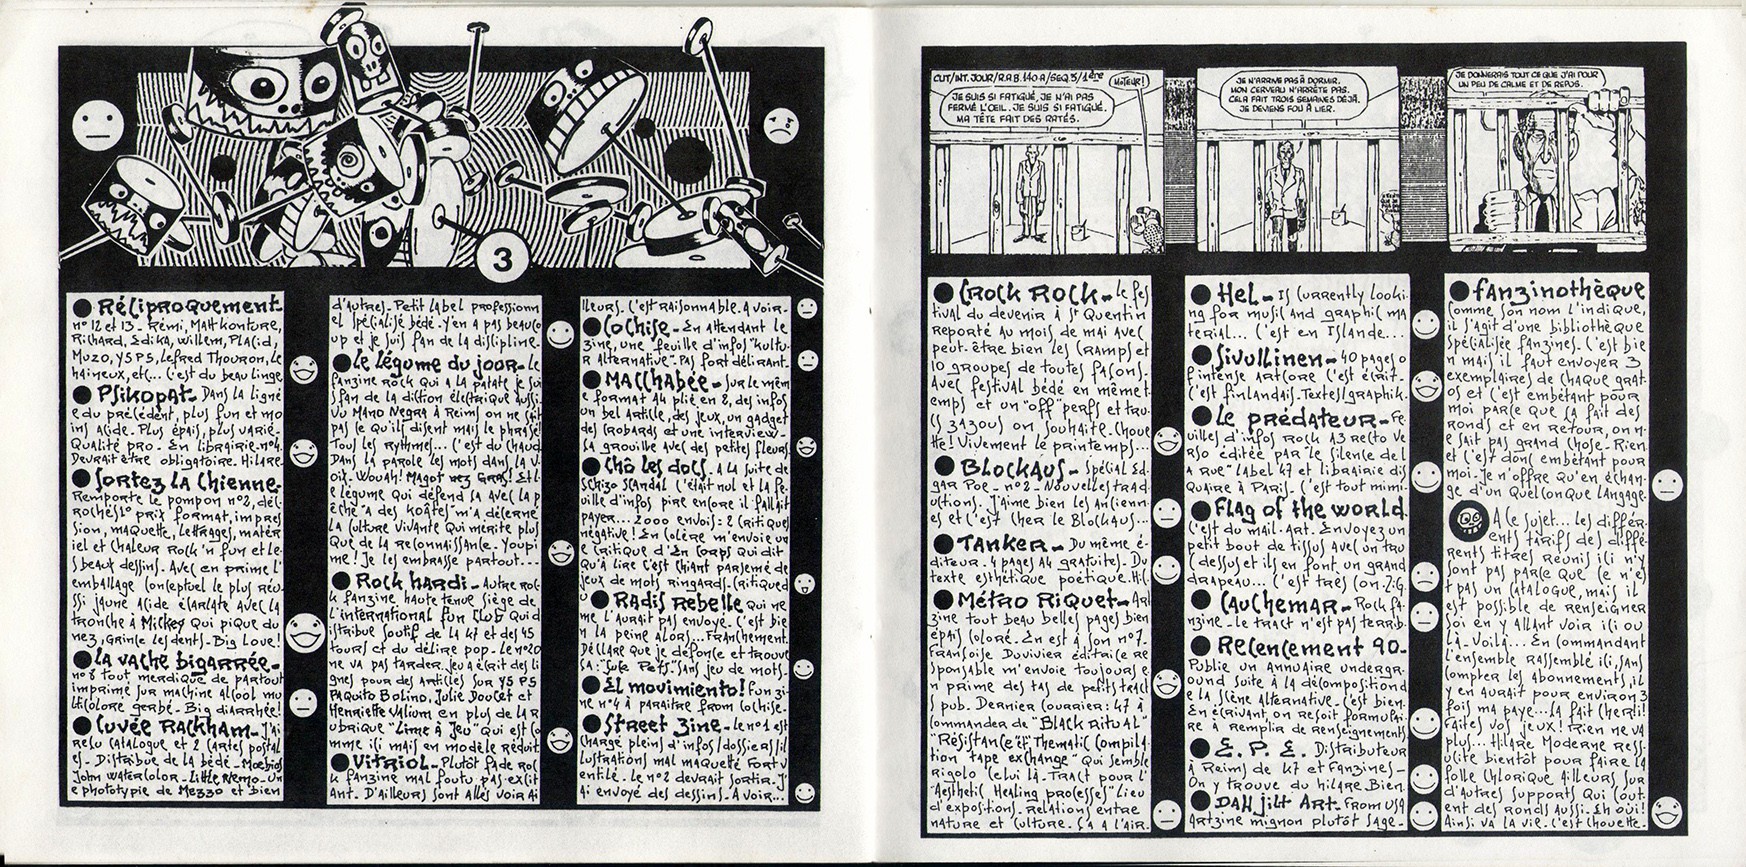 3
● Réciproquement_
n° 12 et 13_ Rémi, Matt konture,
Richard, Edika, Willem, Placid,
Muzo, Y5 P5, Lefred Thouron, Le
haineux, etc... C'est du beau linge
● Psikopat_ Dans la lign
e du précédent, plus fun et mo
ins acide. Plus épais, plus varié_
Qualité pro_ En librairie. n°4.
Devrait être obligatoire. Hilare_
● Sortez la Chienne_
Remporte le pompon n°2, déc
rochés 1° prix format, impres
sion, maquette, lettrages, matér
iel et chaleur Rock'n fun et le_
s beaux dessins. Avec en prime l'
emballage conceptuel le plus réu_
ssi jaune acide écarlate avec la
tronche à Mickey qui pique du
nez, grince les dents_ Big Love!
● La vache bigarrée_
n°8 tout merdique de partout
imprimé sur machine alcool mu
lticolore gerbé_ Big diarrhée!
● Cuvée Rackham_ J'ai
reçu catalogue et 2 cartes postal
es_ Distribue de la bédé_ Moebius
John Watercolor_ Little Nemo_ Un
e phototypie de Mezzo et bien
d'autres_ Petit label professionn
el spécialisé bédé_ Y'en a pas beauco
up et je suis fan de la discipline_
● Le légume du jour_ Le
fanzine rock qui a la patate je sui
s fan de la diction électrique aussi_
Vu Mano Negra à Reims on ne sait
pas ce qu'ils disent mais le phrasé!
Tous les rythmes... C'est du chaud_
Dans la parole les mots dans la v_
oix_ Wouah! Magot nez Gras! Et l
e légume qui défend sa avec la p
êche "a des koâtes" m'a décerné
la culture vivante qui mérite plus
que de la reconnaissance_ Youpi_
me! Je les embrasse partout...
● Rock hardi_ Autre roc
k fanzine haute tenue siège de
l'international fun club qui d
istribue soutif de la k7 et des 45
tours et du délire pop_ Le n°20
ne va pas tarder. Jeu a écrit des li
gnes pour des articles sur Y5 P5
Paquito Bolino, Julie Doucet et
Henriette Valium en plus de la r
ubrique "Lime à Jeu" qui est co
mme ici mais en modèle réduit
● Vitriol_ Plutôt fade roc
k fanzine mal foutu pas excit
ant. D'ailleurs sont allés voir ai
lleurs_ C'est raisonnable. A voir_
● Cochise_ En attendant le
zine, une feuille d'infos "kultu_
r alternative". Pas fort délirant.
● Macchabée_ Sur le mêm
e format A4 plié en 2, des infos
un bel article, des jeux, un gadget
des crobards et une interview_
sa grouille avec des petites fleurs
● Chô les docs_ A la suite de
Schizo Scandal c'était nul et la fe_
uille d'infos pire encore il fallait
payer... 2000 envois = 2 critiques
négative! En colère m'envoie un
e critique d'En Corps qui dit
qu'à lire c'est chiant parsemé de
jeux de mots ringards. Critique d
● Radis Rebelle qui ne
me l'aurait pas envoyé. C'est bie
n la peine alors... Franchement.
Déclare que je défonce et trouve
sa: "Juke Pets". Sans jeu de mots_
● El movimiento! Fun zi_
ne n°4 à paraître from Cochise_
● Street zine_ Le n°1 est
chargé plein d'infos/dossiers/il
lustrations mal maquetté fort v
entilé_ Le n°2 devrait sortir. J'
ai envoyé des dessins_ A voir...
CUT/INT. JOUR/R.A B. 140.A/SEQ.3/1ère
MOTEUR!
JE SUIS SI FATIGUÉ, JE N'AI PAS
FERMÉ L'OEIL. JE SUIS SI FATIGUÉ.
MA TÊTE FAIT DES RATÉS.
JE N'ARRIVE PAS À DORMIR.
MON CERVEAU N'ARRÊTE PAS.
CELA FAIT TROIS SEMAINES DÉJÀ.
JE DEVIENS FOU À LIER.
JE DONNERAIS TOUT CE QUE J'AI POUR
UN PEU DE CALME ET DE REPOS.
● Crock Rock_ Le fes
tival du devenir à St Quentin
reporté au mois de mai avec
peut-être bien les Cramps et
10 groupes de toutes fasons.
Avec festival bédé en mêmet
emps et un "off" perfs et tru_
ss zazous on souhaite. Choue
tte! Vivement le printemps...
● Blockaus_ Spécial Ed_
gar Poe_ n°2_ Nouvelles trad_
uctions. J'aime bien les ancienn_
es et c'est cher le Blockaus...
● Tanker_ Du même é_
diteur. 4 pages A4 gratuites_ Du
texte esthétique poétique. Hic.
● Métro Riquet_ Art
zine tout beau belles pages bien
épais coloré_ En est à son n°7_
Françoise Duvivier éditrice re
sponsable m'envoie toujours e
n prime des tas de petits tract
s pub_ Dernier courrier: k7 à
commander de "Black Ritual"
"Résistance" et "Thematic compila_
tion tape exchange" qui semble
rigolo celui là_ Tract pour l'
"Aesthetic Healing processes" lieu
d'exposition. Relation entre
nature et culture_ S'a a l'air_
● Hel_ Is currently looki_
ng for music and graphic ma
terial... C'est en Islande...
● Sivullinen_ 40 pages d
'intense artcore c'est écrit_
C'est finlandais. Textes/graphik_
● Le prédateur_ Fe_
uilles d'infos rock A3 recto ve
rso éditée par "le silence de l
a rue" label k7 et librairie dis
quaire à Paris_ C'est tout mimi_
● Flag of the world_
C'est du mail_ art. Envoyez un
petit bout de tissus avec un tru
c dessus et ils en font un grand
drapeau... C'est très con. Zig.
● Cauchemar_ Rock fa_
nzine_ Le tract n'est pas terrib_
● Recencement 90_
Publie un annuaire undergr_
ound suite à la décomposition d
e la scène alternative_ C'est bien.
En écrivant on resoit formulai_
re à remplir de renseignements_
● E. P. E. Distributeur
à Reims de k7 et fanzines_
On y trouve du hilare_ Bien_
● Dah jilt Art_ From USA
Artzine mignon plutôt sage_
● Fanzinothèque
Comme son nom l'indique,
il s'agit d'une bibliothèque
spécialisée fanzines. C'est bie
n mais il faut envoyer 3
exemplaires de chaque grat_
os et c'est embêtant pour
moi parce que sa fait des
ronds et en retour, on n
e sait pas grand chose_ Rien
et c'est donc embêtant pour
moi. Je n'offre qu'en échan_
ge d'un quelconque langage.
A ce sujet... les différ_
ents tarifs des diffé_
rents titres réunis ici n'y
sont pas parce que ce n'es
t pas un catalogue, mais il
est possible de renseigner
soi en y allant voir ici ou
là_ Voilà... En commandant
l'ensemble rassemblé ici, sans
compter les abonnements, il
y en aurait pour environ 3
fois ma paye... Sa fait cher!!!
Faites vos jeux! Rien ne va
plus... Hilare Moderne ress_
uscite bientôt pour faire la
folle chlorique ailleurs sur
d'autres supports qui cout_
ent des ronds aussi_ Eh oui!
Ainsi va la vie. C'est chouette_